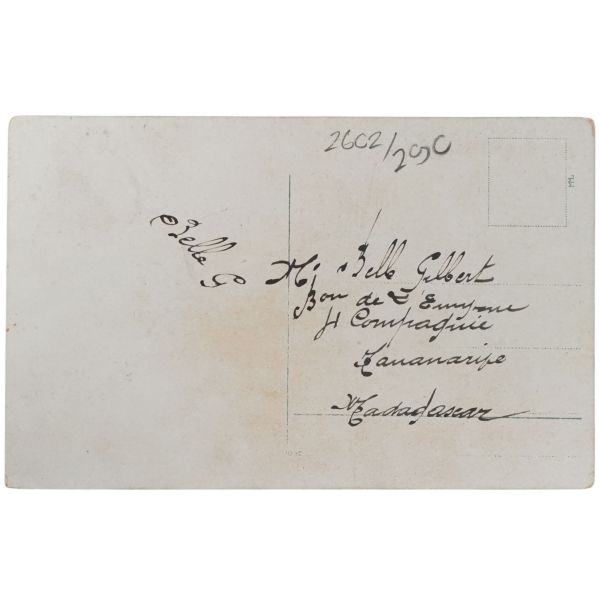 2602/2090
Belle G
Mr Belle Gilbert
Bon de L'Emyrne
4 Compagnie
Tananarive
Madagascar